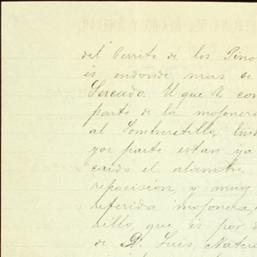 del Cerrito de los Pino
es endonde mas se
Sercado. U que le con
parte de la mojonera
al Sombreretillo, lind
por parte estan ya
caido el alambre
reposicion, y muy
referida mojonera,
drillo, que es por d
de D. Luis Natere